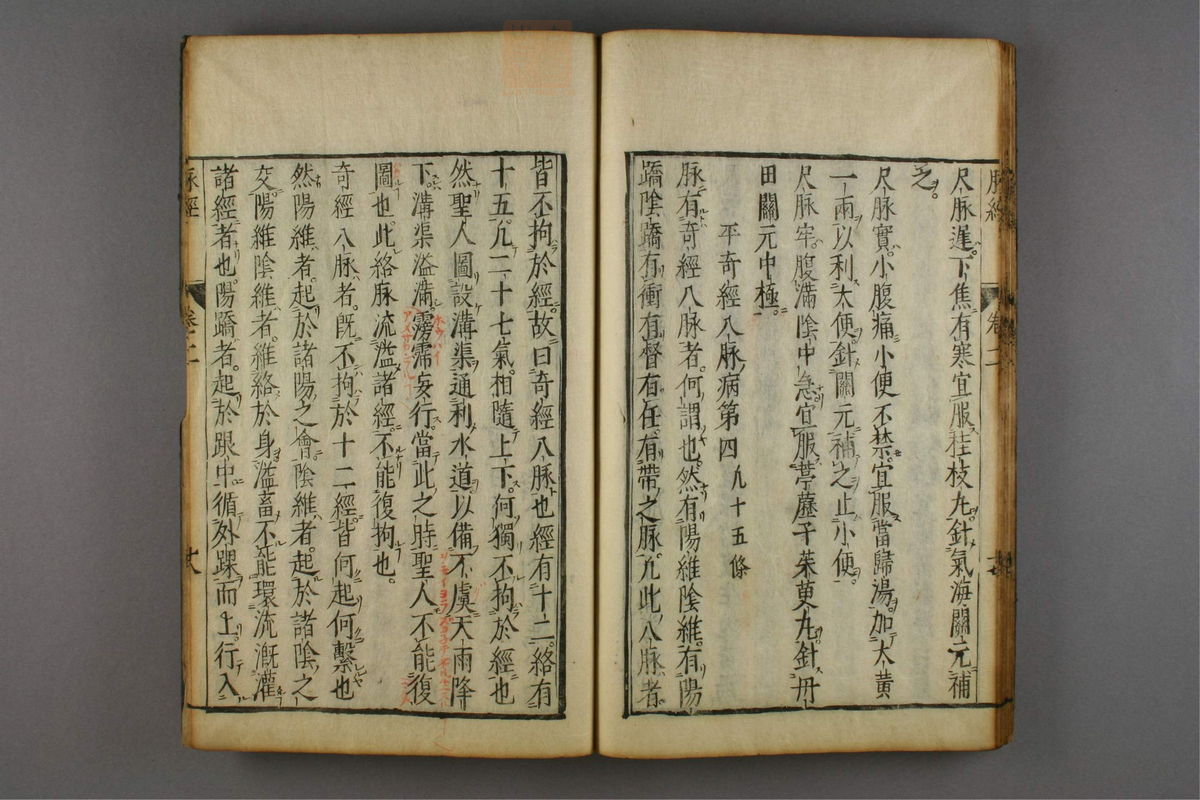 尺脉遲下焦有寒宜服桂枝丸針氣海關元補
之
尺脉實小腹痛小便不禁宜服當歸湯加大黃
一兩以利大便針關元補之止小便
尺脉牢腹滿陰中急宜服葶藶子茱萸丸針丹
田關元中極
平奇經八脉病第四 凡十五條
脉有奇經八脉者何謂也然有陽維陰維有陽
蹻陰蹻有衝有督有任有帶之脉凡此八脉者
皆不拘於經故曰奇經八脉也經有十二絡有
十五凡二十七氣相隨上下何獨不拘於經也
然聖人圖設溝渠通利水道以備不虞天雨降
下溝渠溢滿霶霈妄行當此之時聖人不能復
圖也此絡脉流溢諸經不能復拘也
奇經八脉者既不拘於十二經皆何起何繫也
然陽維者起於諸陽之會陰維者起於諸陰之
交陽維陰維者維絡於身溢畜不能環流溉灌
諸經者也陽蹻者起於跟中循外踝而上行入
脉經 卷二